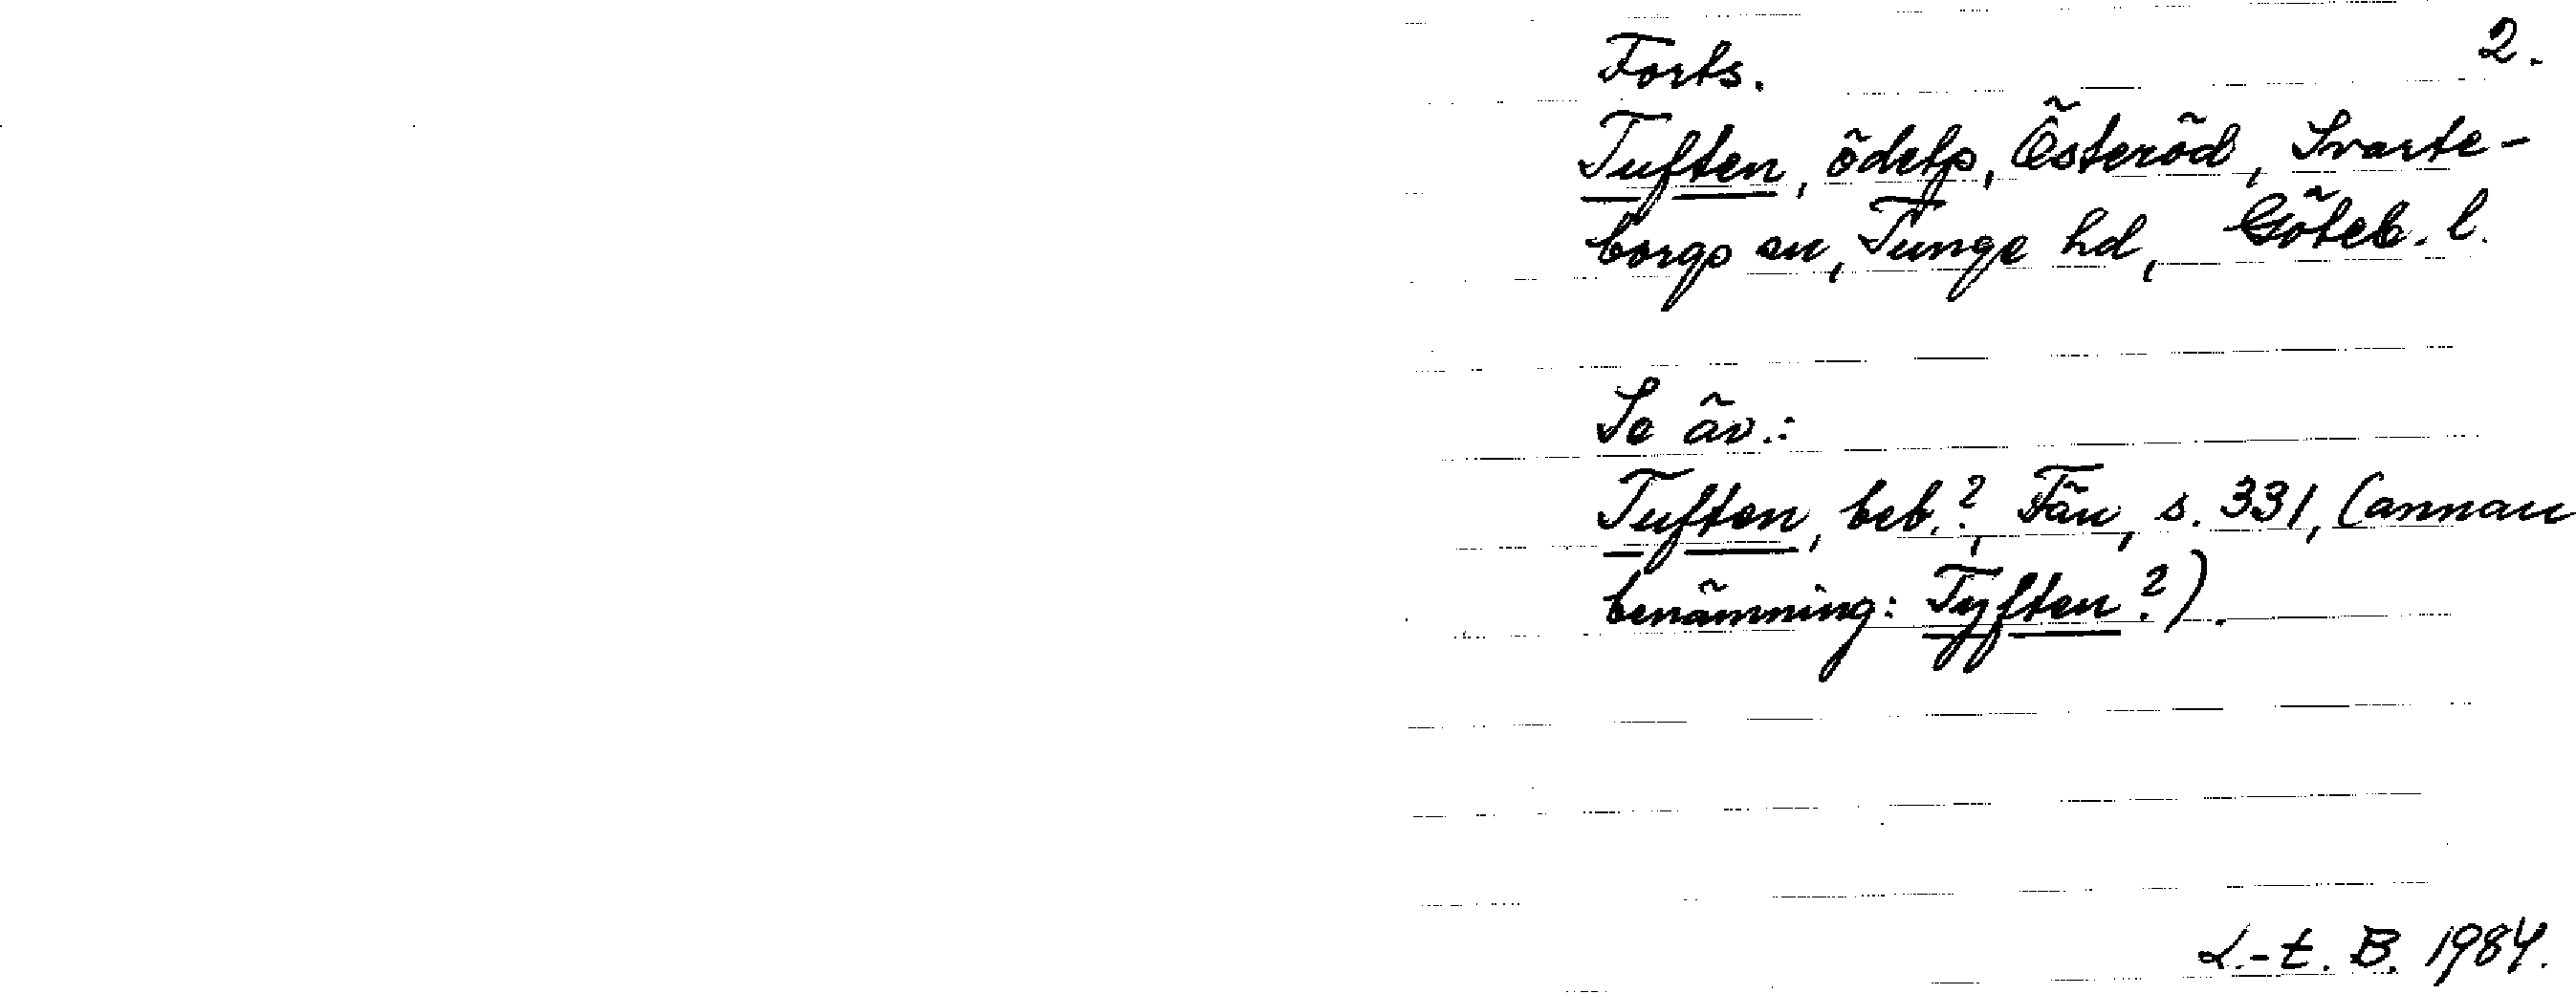 Forts. 2.
Tuften, ödetp, Österöd, Svarte-
borgs sn, Tunge hd, Göteb. l.
Se äv.:
Tuften, beb.?, Tän, s. 331, (annan
benämning: Tyften?).
L.-t. B. 1984.